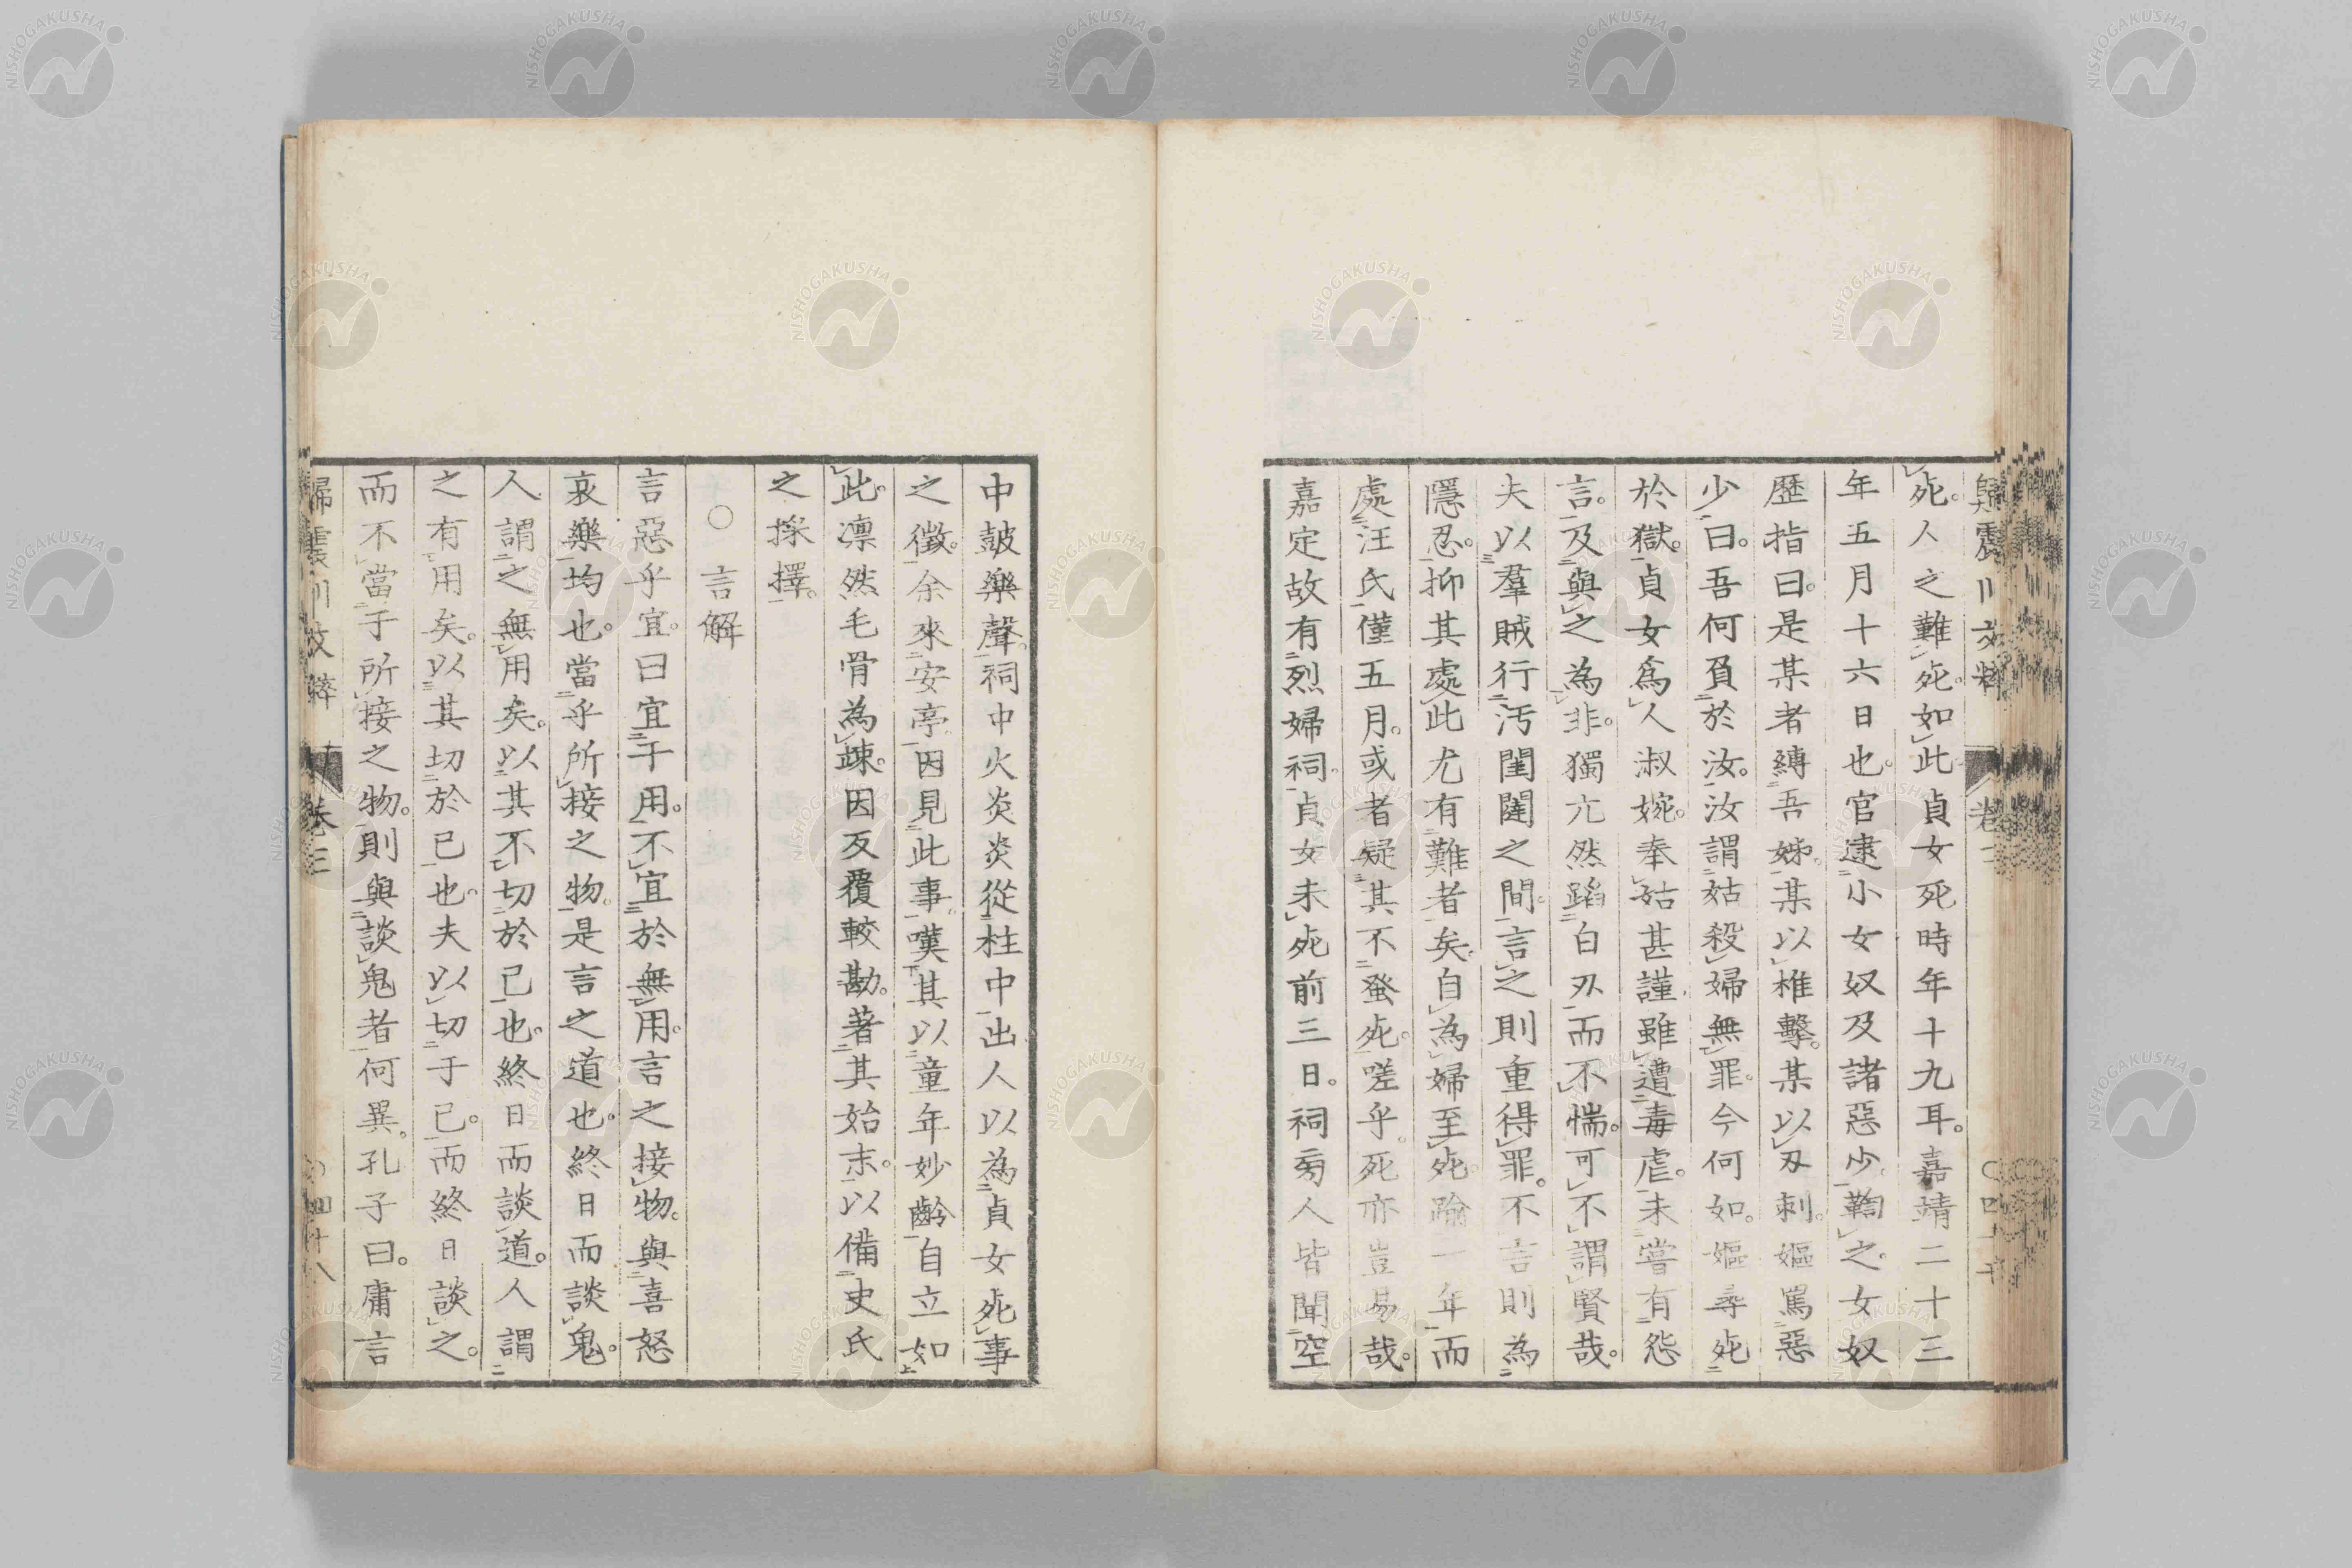 歸震川文粹 卷三
死。人之難死。死如此貞女死時年十九耳。嘉靖二十三
年五月十六日也。官逮小女奴及諸惡少。鞫之。女奴
歷指曰。是某者縛吾姊。某以椎擊。某以刃刺。嫗罵惡
少曰。吾何負於汝。汝謂姑殺婦無罪。今何如。嫗尋死
於獄。貞女為人淑婉。奉姑甚謹。雖遭毒虐。未嘗有怨
言。及與之為非。獨亢然蹈白刃而不惴。可不謂賢哉。
夫以羣賊行汚閨闥之間。言之則重得罪。不言則為
隱忍。抑其處此尤有難者矣。自為婦至死。踰一年。而
處汪氏僅五月。或者疑其不蚤死。嗟乎。死亦豈易哉。
嘉定故有烈婦祠。貞女未死前三日。祠旁人皆聞空
中鼓樂聲。祠中火炎炎從柱中出人以為貞女死事
之徵。余來安亭。因見此事。嘆其以童年妙齡自立如
此。凛然毛骨為竦。因反覆較勘。著其始末。以備史氏
之採擇。
○言解
言惡乎宜。曰宜于用。不宜於無用。言之接物。與喜怒
哀樂均也。當乎所接之物。是言之道也。終日而談鬼。
人謂之無用矣。以其不切於已也。終日而談道。人謂
之有用矣。以其切於已也。夫以切于已。而終日談之。
而不當于所接之物。則與談鬼者何異。孔子曰。庸言
歸震川文粹 卷三 〇四十八